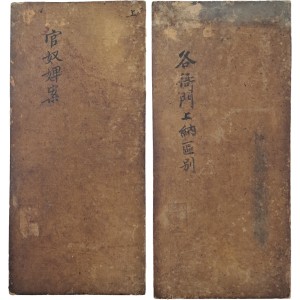 官奴婢案
上
各衙門上納區別